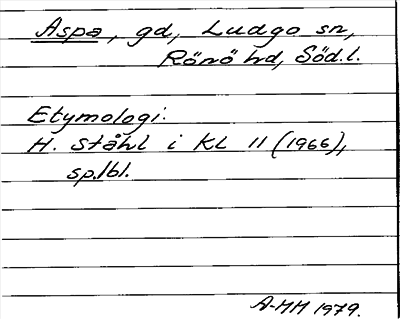 Aspa, gd, Ludgo sn,
Rönö hd, Söd.l.
Etymologi:
H. Ståhl i KL 11 (1966),
sp.181.
A-MM 1979.